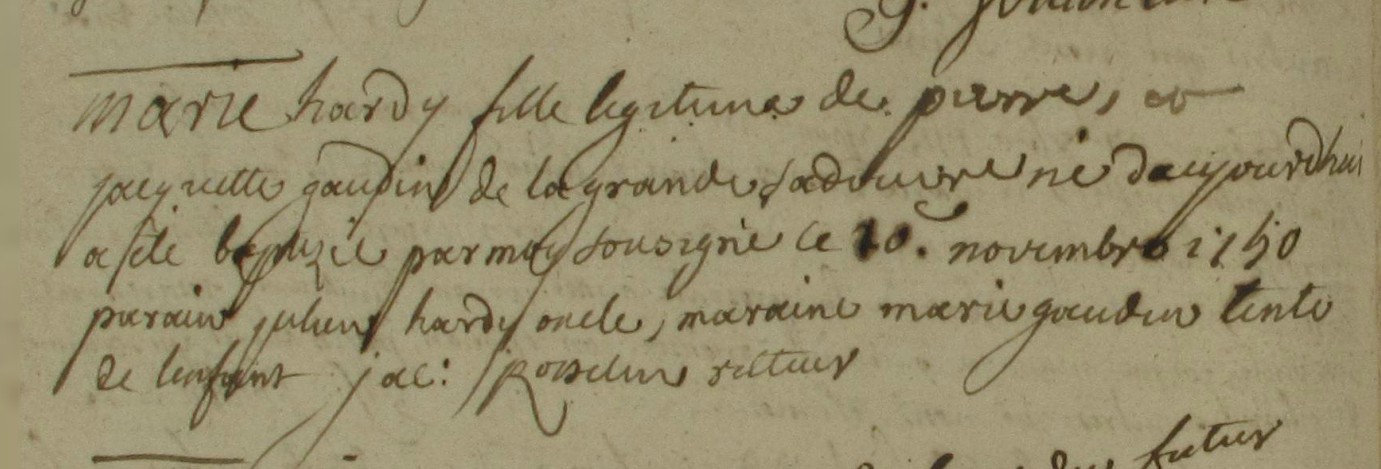 marie hardy fille legitime de pierre, et
jacquette gaudin de la grande ne daujourdhui
a este baptizée par moy sousigné le 10. novembre 1750
parain julien hardy oncle, maraine marie gaudin tente
de lenfant jac: recteur
futur